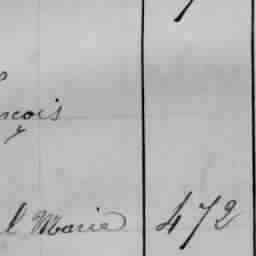 ncois
l Marie 472